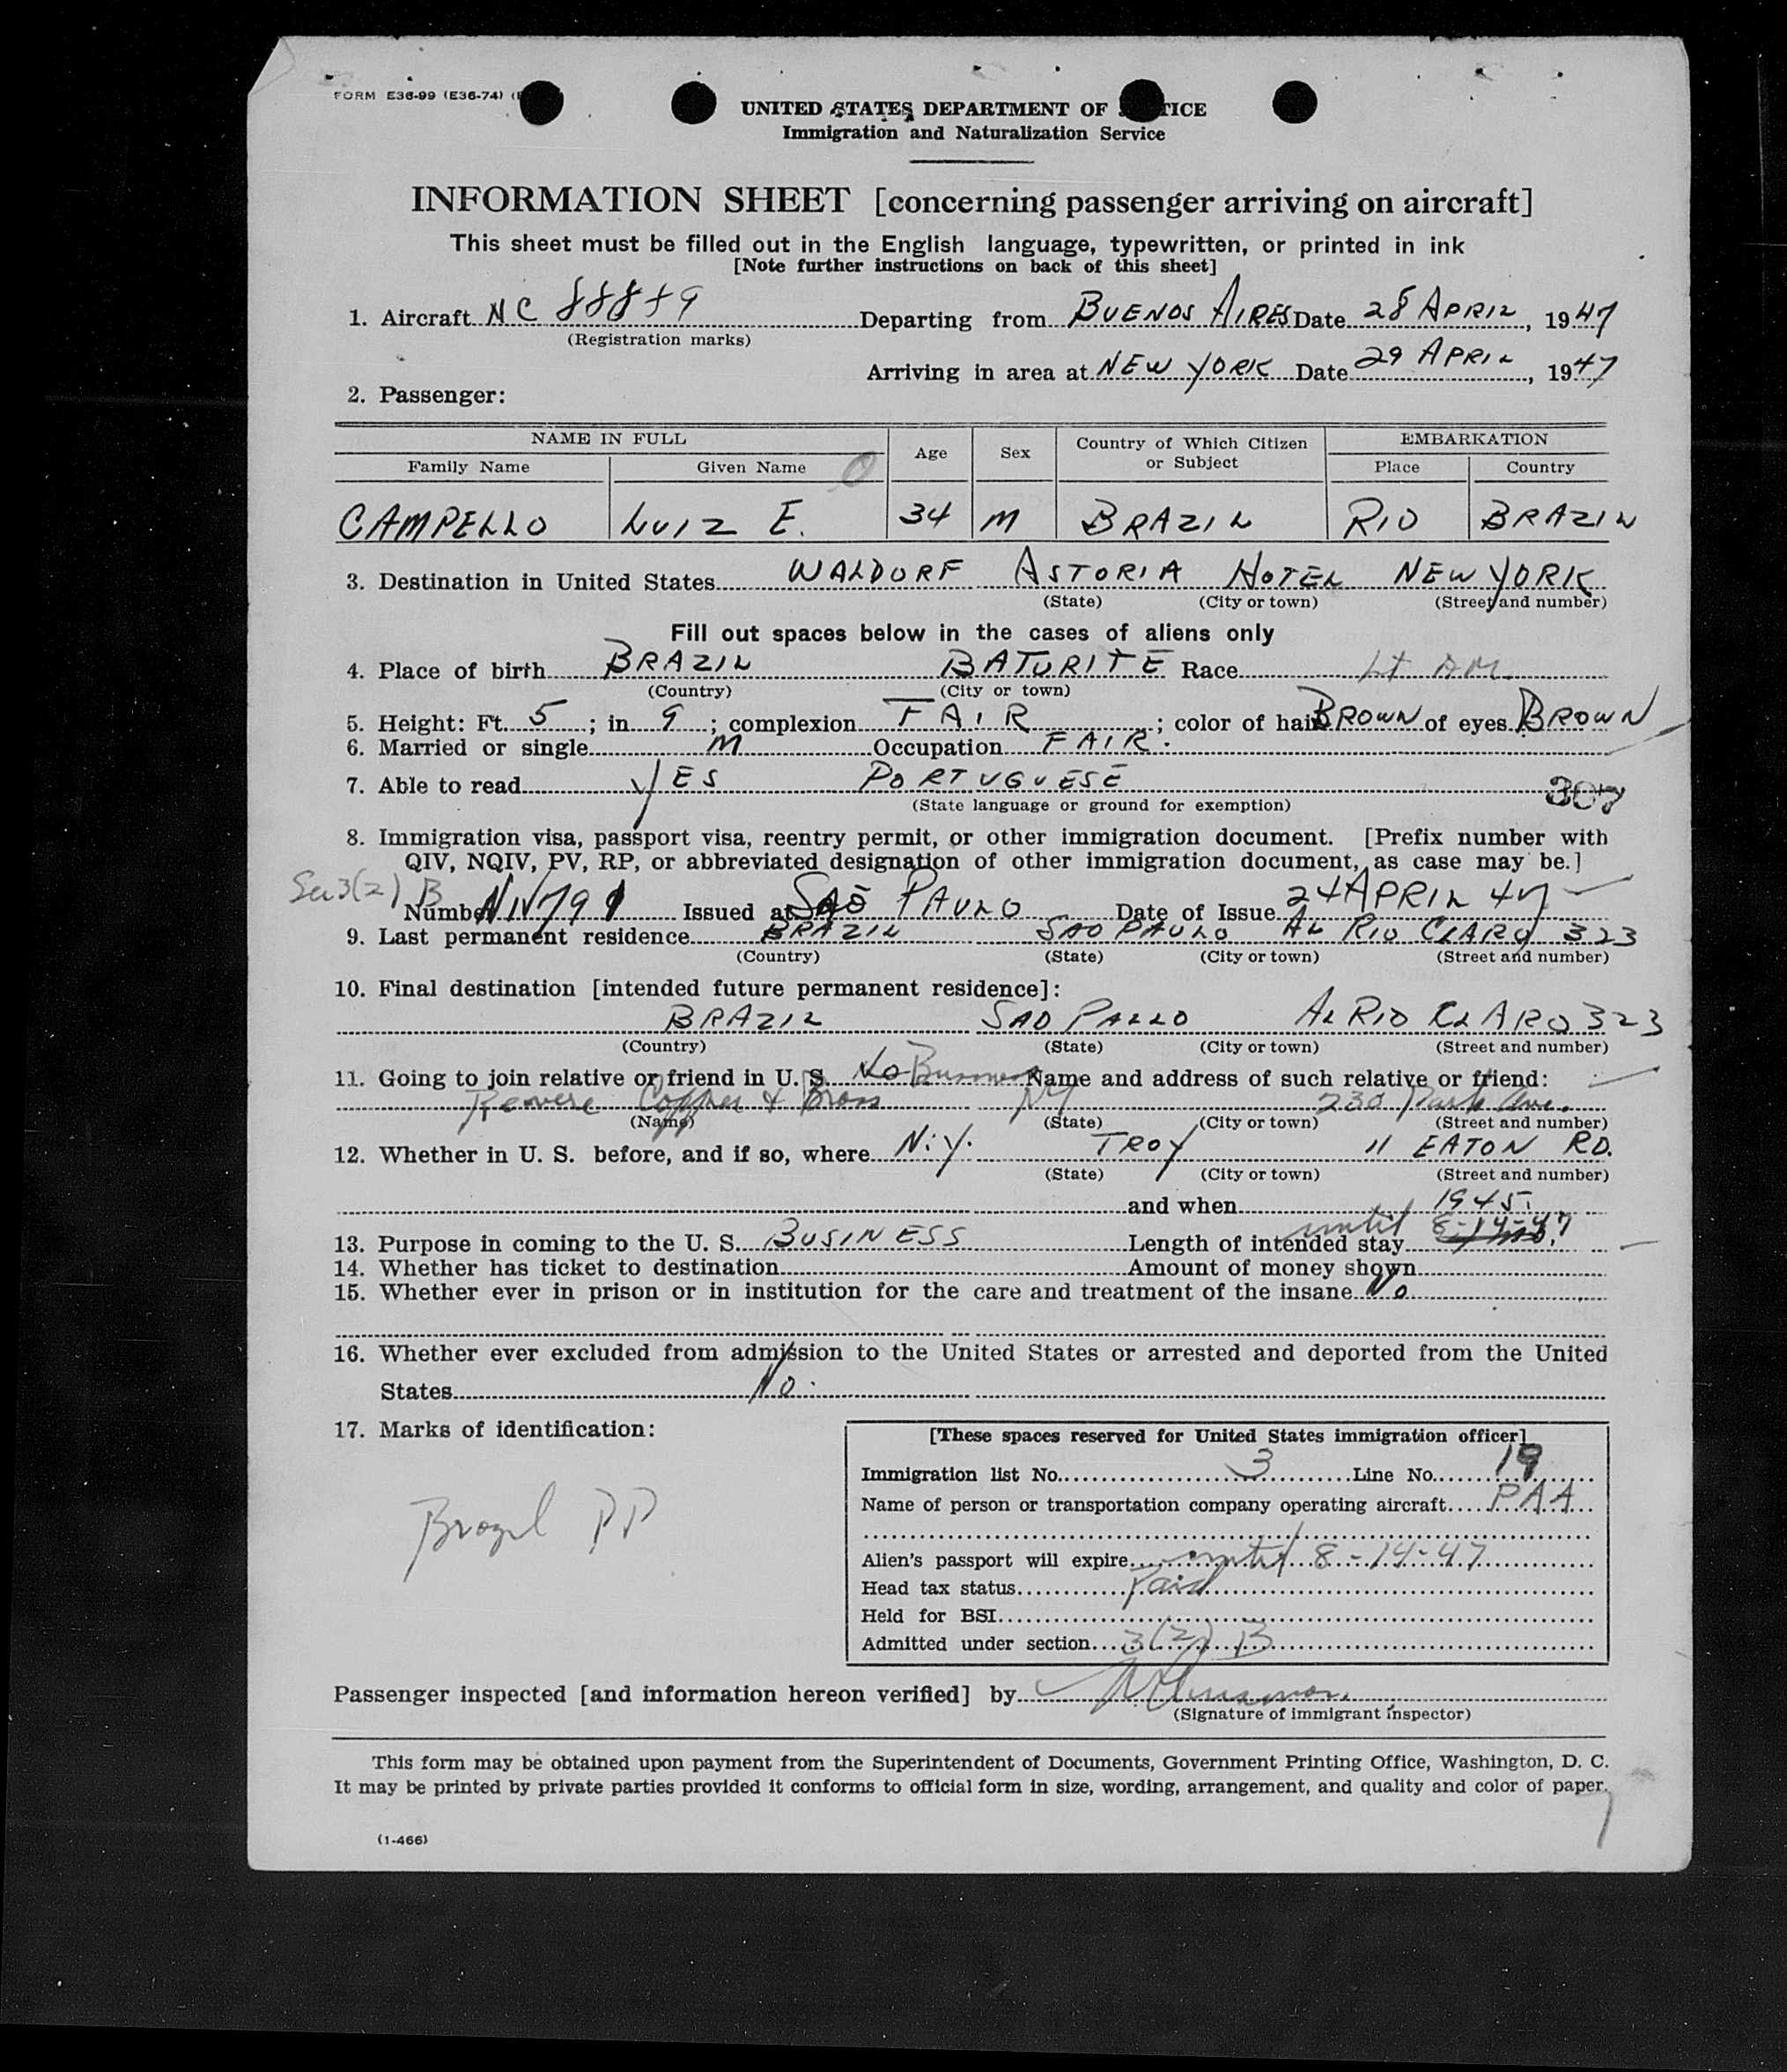 FORM E36-99 (E36-74)
UNITED STATES DEPARTMENT OF JUSTICE
Immigration and Naturalization Service
INFORMATION SHEET [concerning passenger arriving on aircraft]
This sheet must be filled out in the English language, typewritten, or printed in ink
[Note further instructions on back of this sheet]
1. Aircraft NC 88889 Departing from BUENOS AIRES Date 28 APRIL, 1947
(Registration marks)
Arriving in area at NEW YORK Date 29 APRIL, 1947
2. Passenger:
NAME IN FULL Age Sex Country of Which Citizen or Subject EMBARKATION
Family Name Given Name Place Country
CAMPELLO LUIZ E. 34 M BRAZIL RIO BRAZIL
3. Destination in United States WALDORF ASTORIA HOTEL NEW YORK
(State) (City or town) (Street and number)
Fill out spaces below in the cases of aliens only
4. Place of birth BRAZIL BATURITE Race Lt AM.
(Country) (City or town)
5. Height: Ft. 5; in 9; complexion FAIR; color of hair BROWN of eyes BROWN
6. Married or single M Occupation FAIR.
7. Able to read YES PORTUGUESE
(State language or ground for exemption) 307
8. Immigration visa, passport visa, reentry permit, or other immigration document. [Prefix number with
QIV, NQIV, PV, RP, or abbreviated designation of other immigration document, as case may be.]
3(2) B Number Issued at SAO PAULO Date of Issue 24 APRIL 47
9. Last permanent residence BRAZIL SAO PAULO AL RIO CLARO 323
(Country) (State) (City or town) (Street and number)
10. Final destination [intended future permanent residence]:
BRAZIL SAO PALLO AL RIO CLARO 323
(Country) (State) (City or town) (Street and number)
11. Going to join relative or friend in U. S. No Business Name and address of such relative or friend:
Revere Copper & Brass NY 230 Park Ave.
(Name) (State) (City or town) (Street and number)
12. Whether in U. S. before, and if so, where N.Y. TROY 11 EATON RD.
(State) (City or town) (Street and number)
and when 1945.
13. Purpose in coming to the U. S. BUSINESS Length of intended stay until 8-14-47
14. Whether has ticket to destination Amount of money shown
15. Whether ever in prison or in institution for the care and treatment of the insane No
16. Whether ever excluded from admission to the United States or arrested and deported from the United
States No.
17. Marks of identification:
Brazil PP
[These spaces reserved for United States immigration officer]
Immigration list No. 3 Line No. 19
Name of person or transportation company operating aircraft PAA
Alien's passport will expire until 8-14-47
Head tax status Paid
Held for BSI
Admitted under section 3(2) B
Passenger inspected [and information hereon verified] by
(Signature of immigrant inspector)
This form may be obtained upon payment from the Superintendent of Documents, Government Printing Office, Washington, D. C.
It may be printed by private parties provided it conforms to official form in size, wording, arrangement, and quality and color of paper.
(1-466)